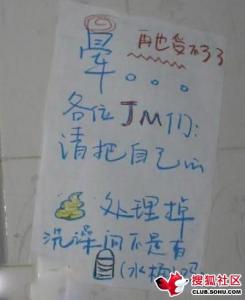 再也受不了了
晕。。。
各位JM们:
请把自己
处理掉
洗澡间不是有
(水桶)吗
搜狐社区
CLUB.SOHU.COM